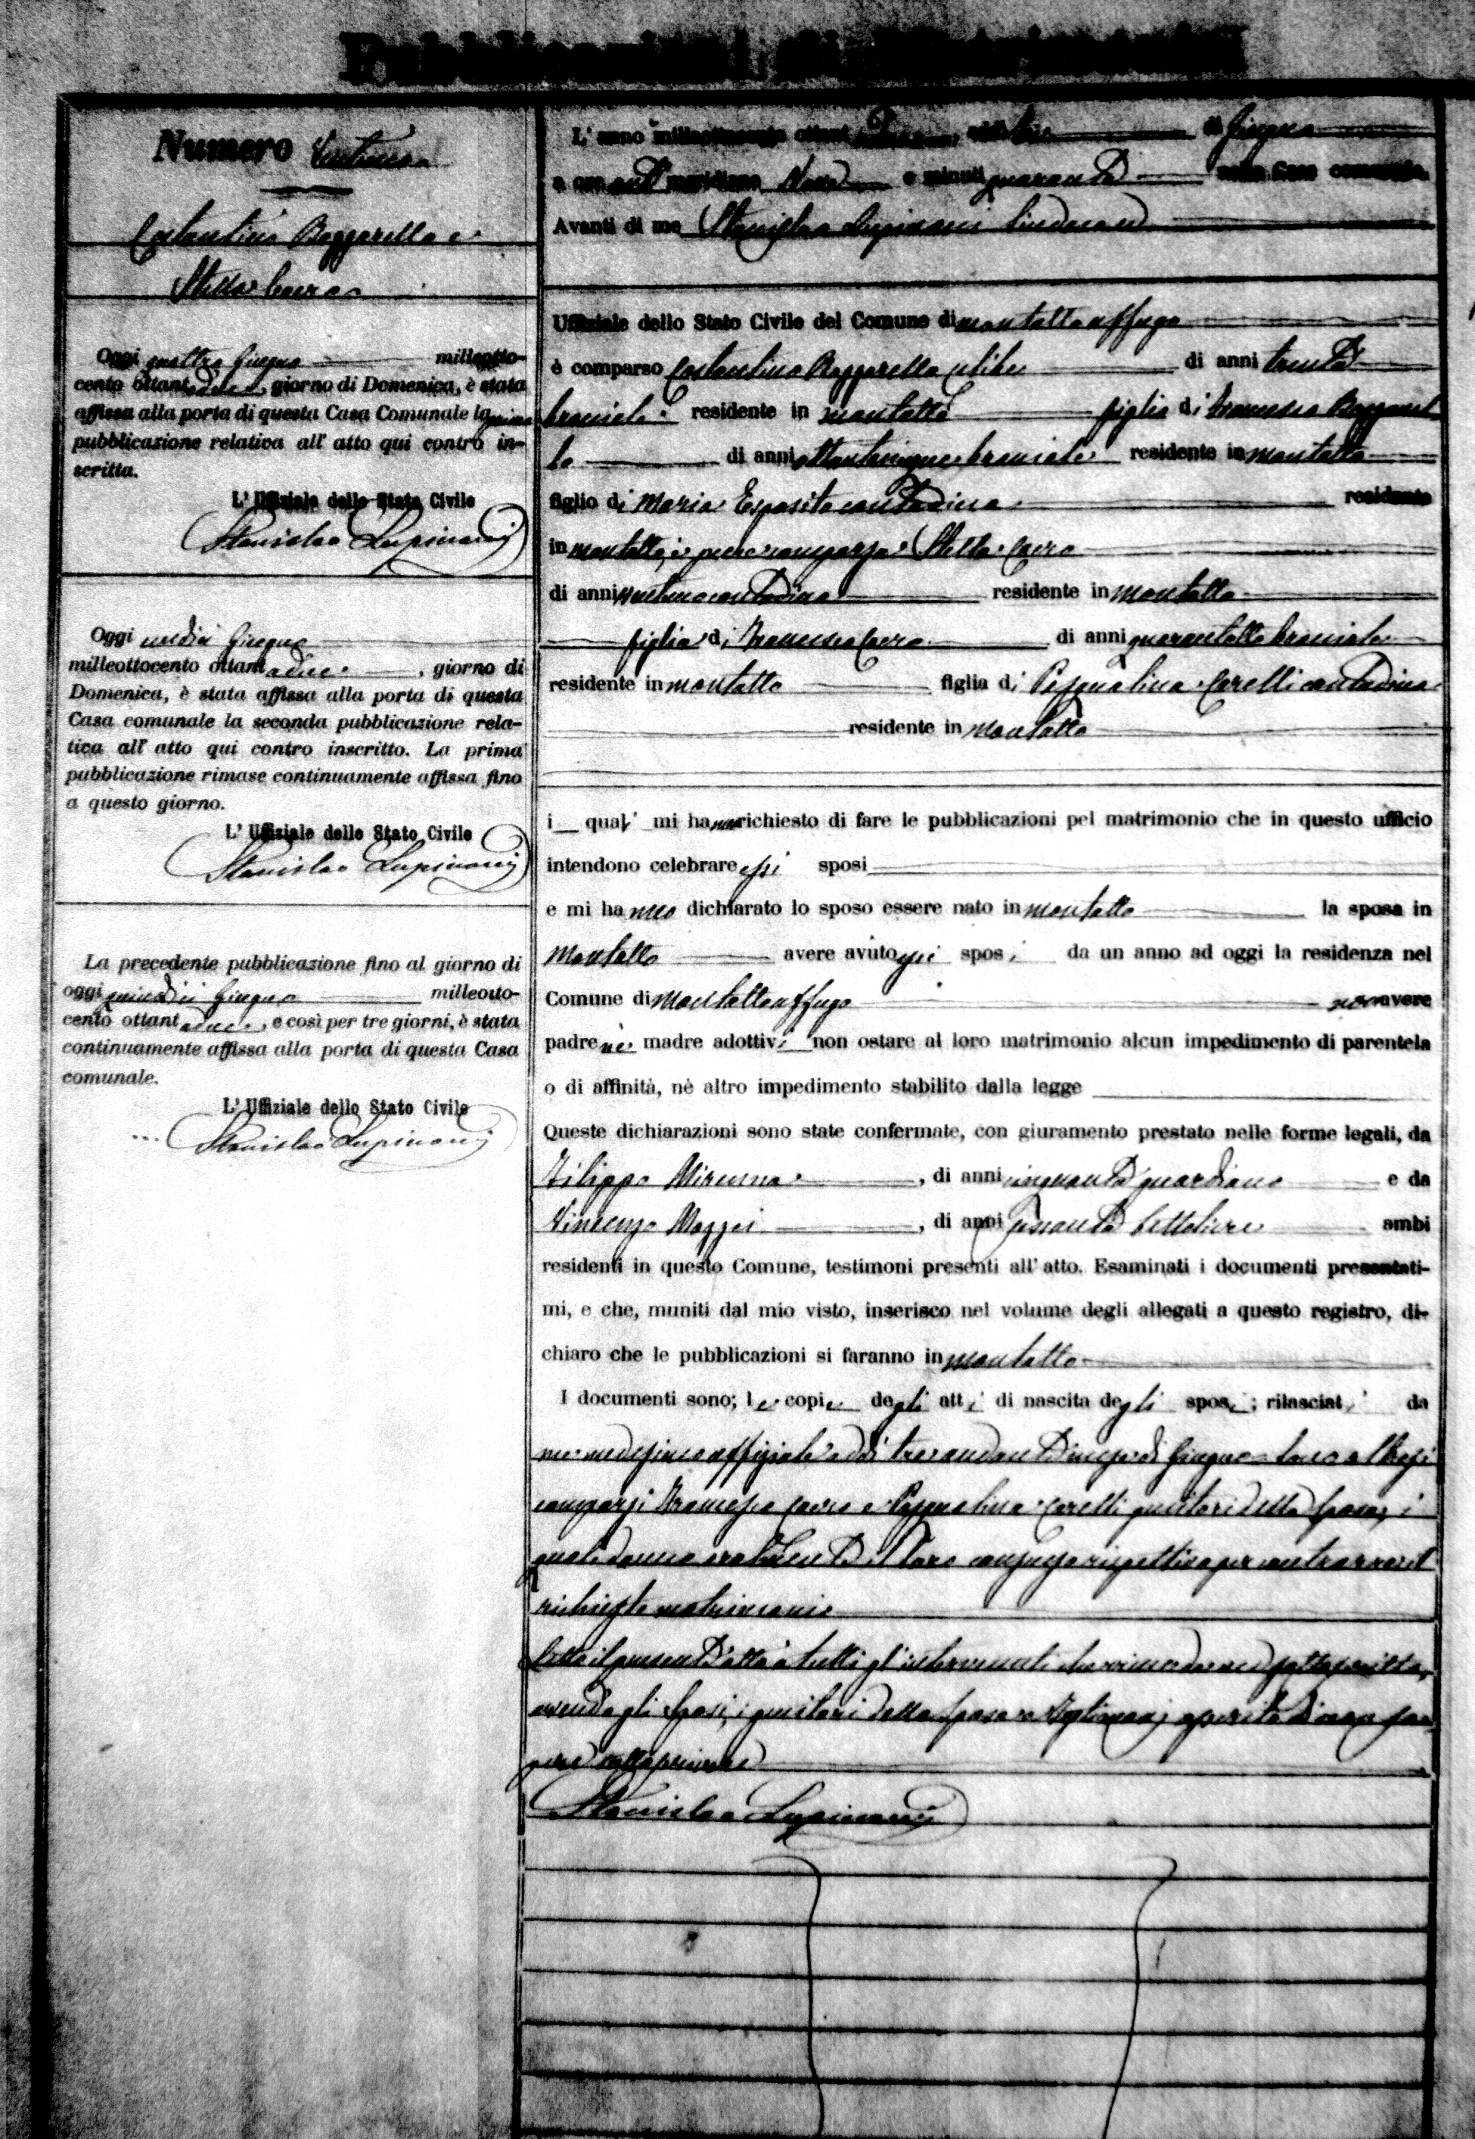 Pubblicazioni di Matrimonio
Numero Ventuno
Costantino Bozzarello e
Stella Cairo
Oggi quattro Giugno milleotto-
cento ottantadue, giorno di Domenica, è stata
affissa alla porta di questa Casa Comunale la prima
pubblicazione relativa all' atto qui contro in-
scritta.
L' Uffiziale dello Stato Civile
Stanislao Lupinacci
Oggi undici Giugno
milleottocento ottantadue, giorno di
Domenica, è stata affissa alla porta di questa
Casa comunale la seconda pubblicazione rela-
tiva all' atto qui contro inscritto. La prima
pubblicazione rimase continuamente affissa fino
a questo giorno.
L' Uffiziale dello Stato Civile
Stanislao Lupinacci
La precedente pubblicazione fino al giorno di
oggi quindici Giugno milleotto-
cento ottantadue, e così per tre giorni, è stata
continuamente affissa alla porta di questa Casa
comunale.
L' Uffiziale dello Stato Civile
Stanislao Lupinacci
L' anno milleottocento ottantadue, addì tre di Giugno
a ore anti meridiane Nove e minuti quaranta nella Casa comunale.
Avanti di me Stanislao Lupinacci Sindaco
Uffiziale dello Stato Civile del Comune di Montalto Uffugo
è comparso Costantino Bozzarello celibe di anni trenta
bracciale residente in Montalto figlio di Francesco Bozzarel
lo di anni ottantacinque bracciale residente in Montalto
figlio di Maria Esposito contadina residente
in Montalto, è pure comparsa Stella Cairo
di anni ventuno contadina residente in Montalto
figlia di Francesco Cairo di anni quarantotto bracciale
residente in Montalto figlia di Pasqualina Carelli contadina
residente in Montalto
i quali mi hanno richiesto di fare le pubblicazioni pel matrimonio che in questo ufficio
intendono celebrare essi sposi
e mi hanno dichiarato lo sposo essere nato in Montalto la sposa in
Montalto avere avuto essi sposi da un anno ad oggi la residenza nel
Comune di Montalto Uffugo non avere
padre nè madre adottivi non ostare al loro matrimonio alcun impedimento di parentela
o di affinità, nè altro impedimento stabilito dalla legge
Queste dichiarazioni sono state confermate, con giuramento prestato nelle forme legali, da
Filippo, di anni cinquanta guardiano e da
Vincenzo, di anni sessanta bettoliere ambi
residenti in questo Comune, testimoni presenti all' atto. Esaminati i documenti presentati-
mi, e che, muniti dal mio visto, inserisco nel volume degli allegati a questo registro, di-
chiaro che le pubblicazioni si faranno in Montalto
I documenti sono; le copie degli atti di nascita degli sposi; rilasciati da
me medesimo uffiziale addì tre andante mese di Giugno. Sono altresì
comparsi Francesco Cairo e Pasqualina Carelli genitori della sposa, i
quali danno il loro consenso rispettivo per contrarre il
richiesto matrimonio
Letto il presente atto a tutti gl'intervenuti sottoscritto,
avendo gli sposi, i genitori della sposa e testimonj asserito di non sa
pere sottoscrivere
Stanislao Lupinacci